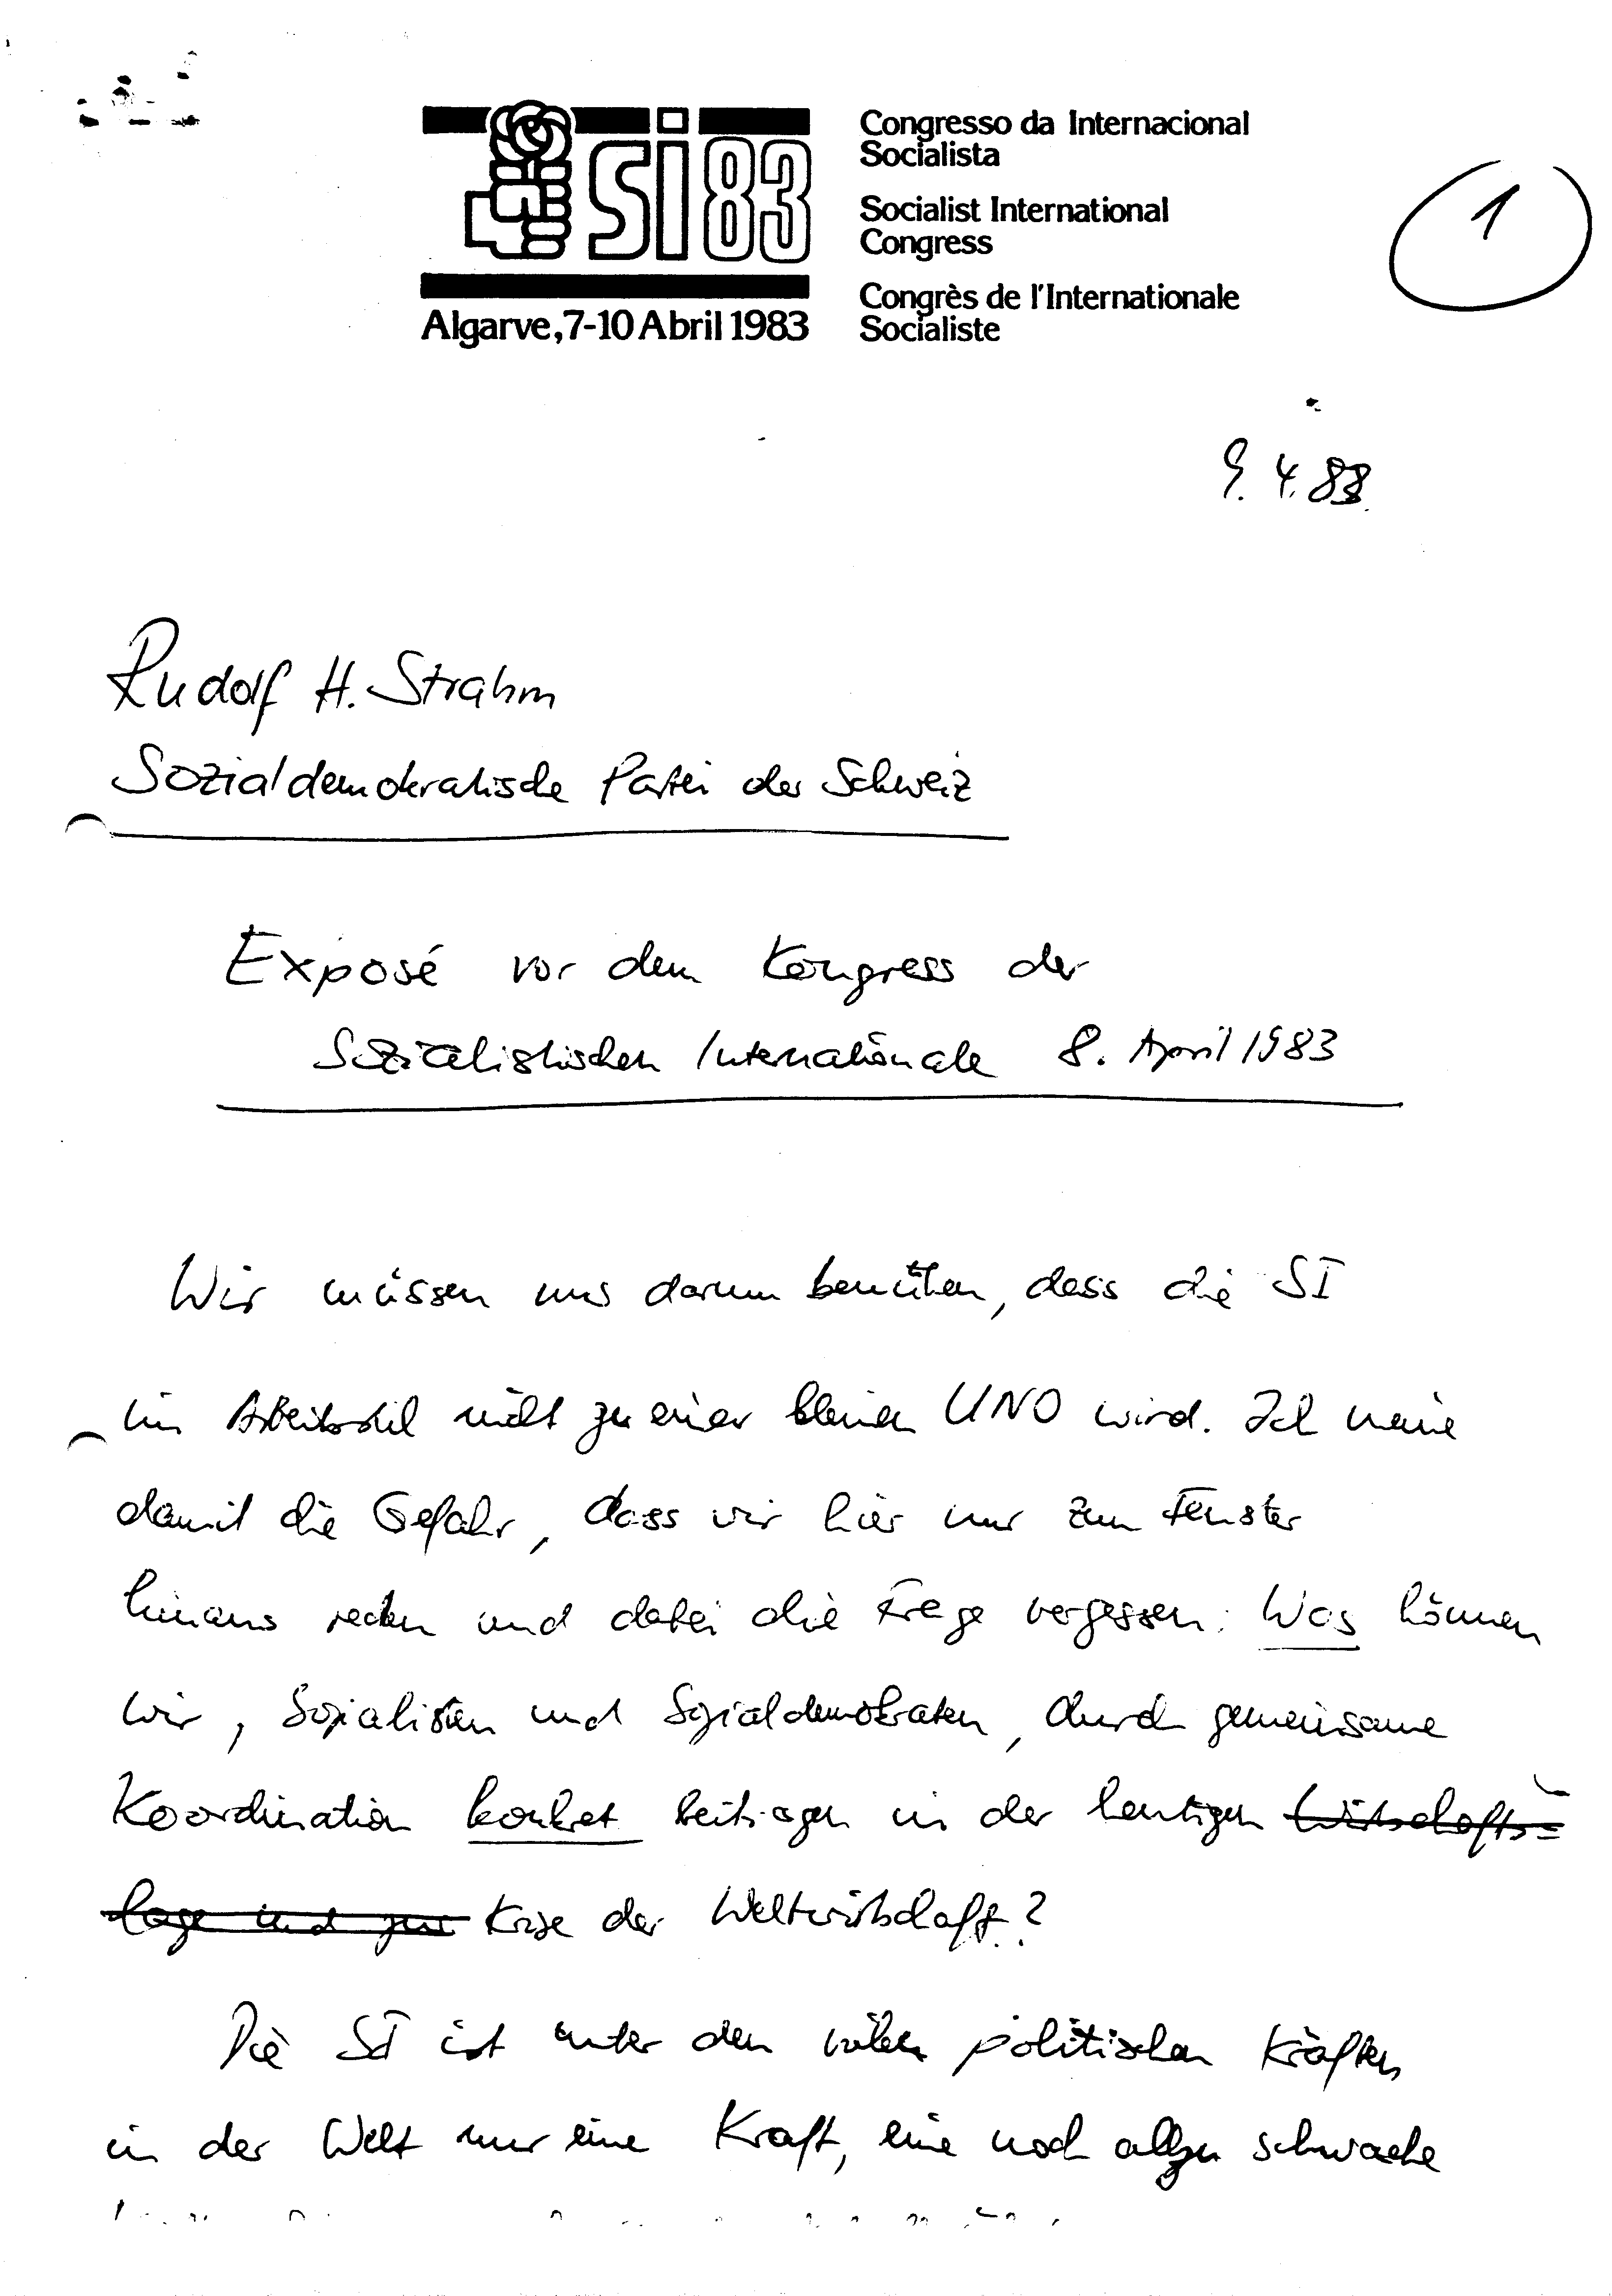 SI 83
Algarve, 7-10 Abril 1983
Congresso da Internacional
Socialista
Socialist International
Congress
Congrès de l'Internationale
Socialiste
1
9. 4. 83
Rudolf H. Strahm
Sozialdemokratische Partei der Schweiz
Exposé vor dem Kongress der
Sozialistischen Internationale 8. April 1983
Wir müssen uns darum bemühen, dass die SI
im Arbeitsstil nicht zu einer kleinen UNO wird. Ich meine
damit die Gefahr, dass wir hier nur zum Fenster
hinaus reden und dabei die Frage vergessen: Was können
wir, Sozialisten und Sozialdemokraten, durch gemeinsame
Koordination konkret beitragen in der heutigen Wirtschafts-
lage und zur Krise der Weltwirtschaft?
Die SI ist unter den vielen politischen Kräften
in der Welt nur eine Kraft, eine noch allzu schwache